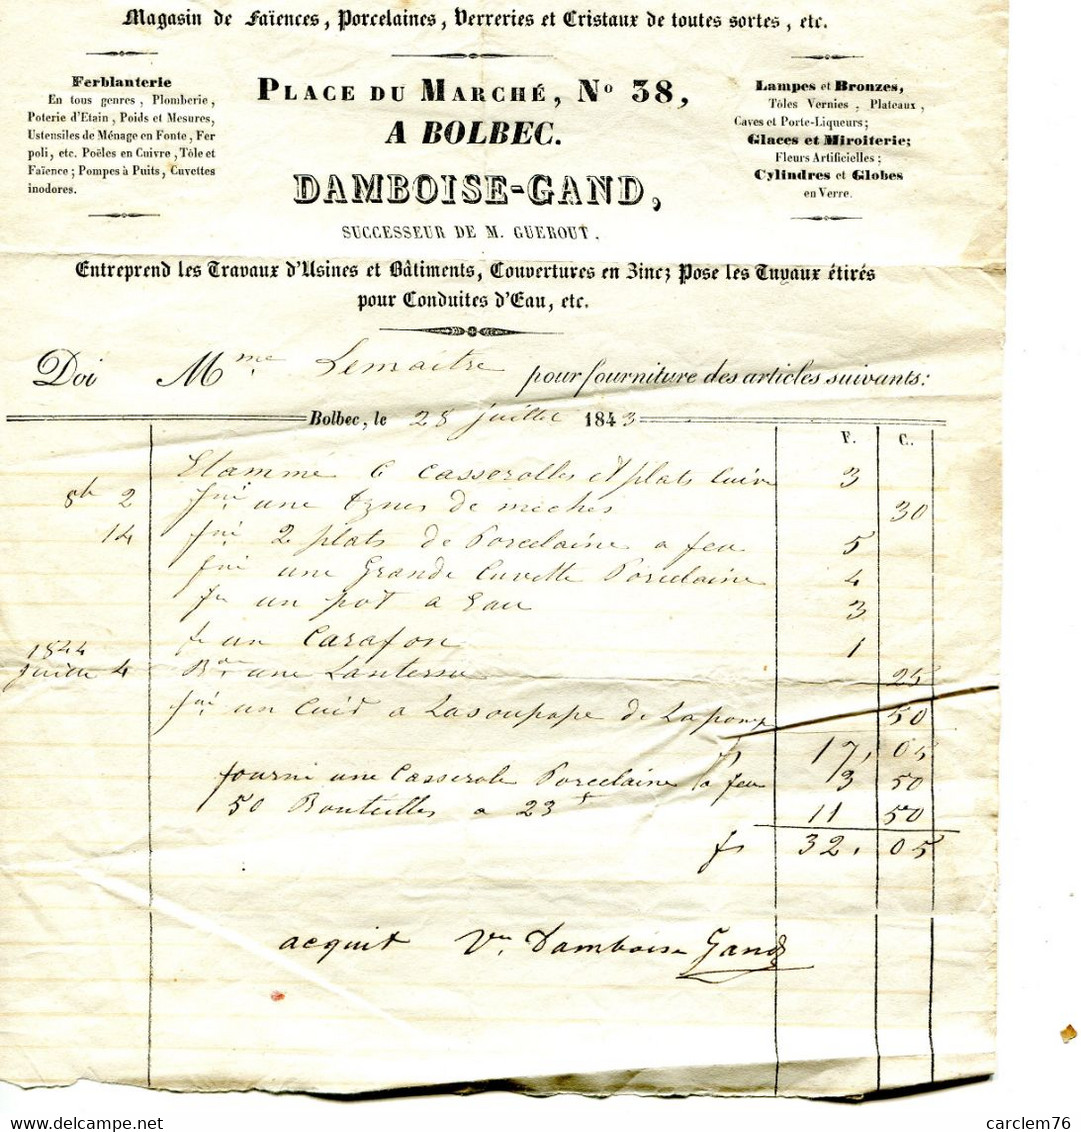 Magasin de Faïences, Porcelaines, Verreries et Cristaux de toutes sortes, etc.
Ferblanterie
En tous genres, Plomberie,
Poterie d'Etain, Poids et Mesures,
Ustensiles de Ménage en Fonte, Fer
poli, etc. Poëles en Cuivre, Tôle et
Faïence; Pompes à Puits, Cuvettes
inodores.
PLACE DU MARCHÉ, No 38,
A BOLBEC.
DAMBOISE-GAND,
SUCCESSEUR DE M. GUEROUT.
Lampes et Bronzes,
Tôles Vernies, Plateaux,
Caves et Porte-Liqueurs;
Glaces et Miroiterie;
Fleurs Artificielles;
Cylindres et Globes
en Verre.
Entreprend les Travaux d'Usines et Bâtiments, Couvertures en Zinc; Pose les Tuyaux étirés
pour Conduites d'Eau, etc.
Doi Mme Lemaitre pour fourniture des articles suivants:
Bolbec, le 28 juillet 1843
F. C.
Etammé 6 Casserolles et plats Cuiv 3
8b 2 fni une de meches 30
14 fni 2 plats de Porcelaine a feu 5
fni une Grande Cuvette Porcelaine 4
fni un pot a Eau 3
fni un Carafon 1
1844
4 une Lanterne 25
fni un Cuid a Lasoupape de Lapomp 50
fs 17, 05
fourni une Casserole Porcelaine a feu 3 50
50 Bouteilles a 23 s 11 50
fs 32. 05
acquit Ve Damboise Gand
carclem76